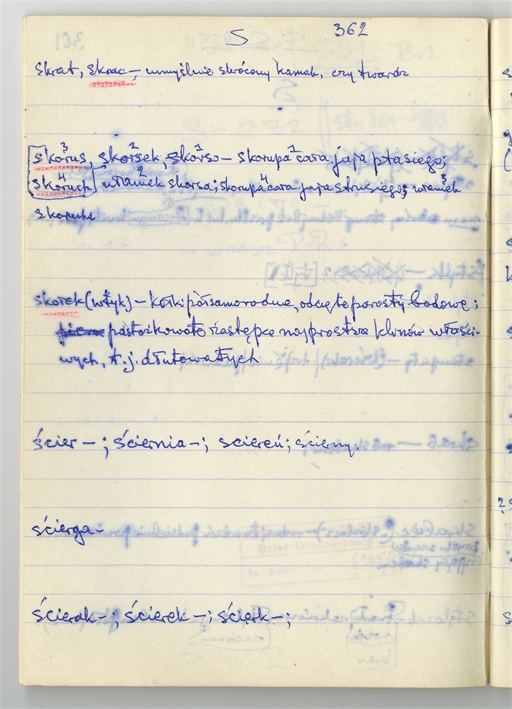 S 362
skrat, skrac –, umyślnie skrócony kamak, czy twardz
skorus, skorsek, skorso – skorupa cara jaja ptasiego;
skoruch, ułamek skorsa; skorupa cara jaja strusiego; ułamek
skoruchi
skorek (wtyk) – półsamorodne, odcięte porosty
pastoikowate następce najprostsza klinów właści-
wych, t.j. dłutowatych
ścier –; ściernia –; ściereń; ścierny.
ścierga –
ścierak –; ścierek –; ścierk –;